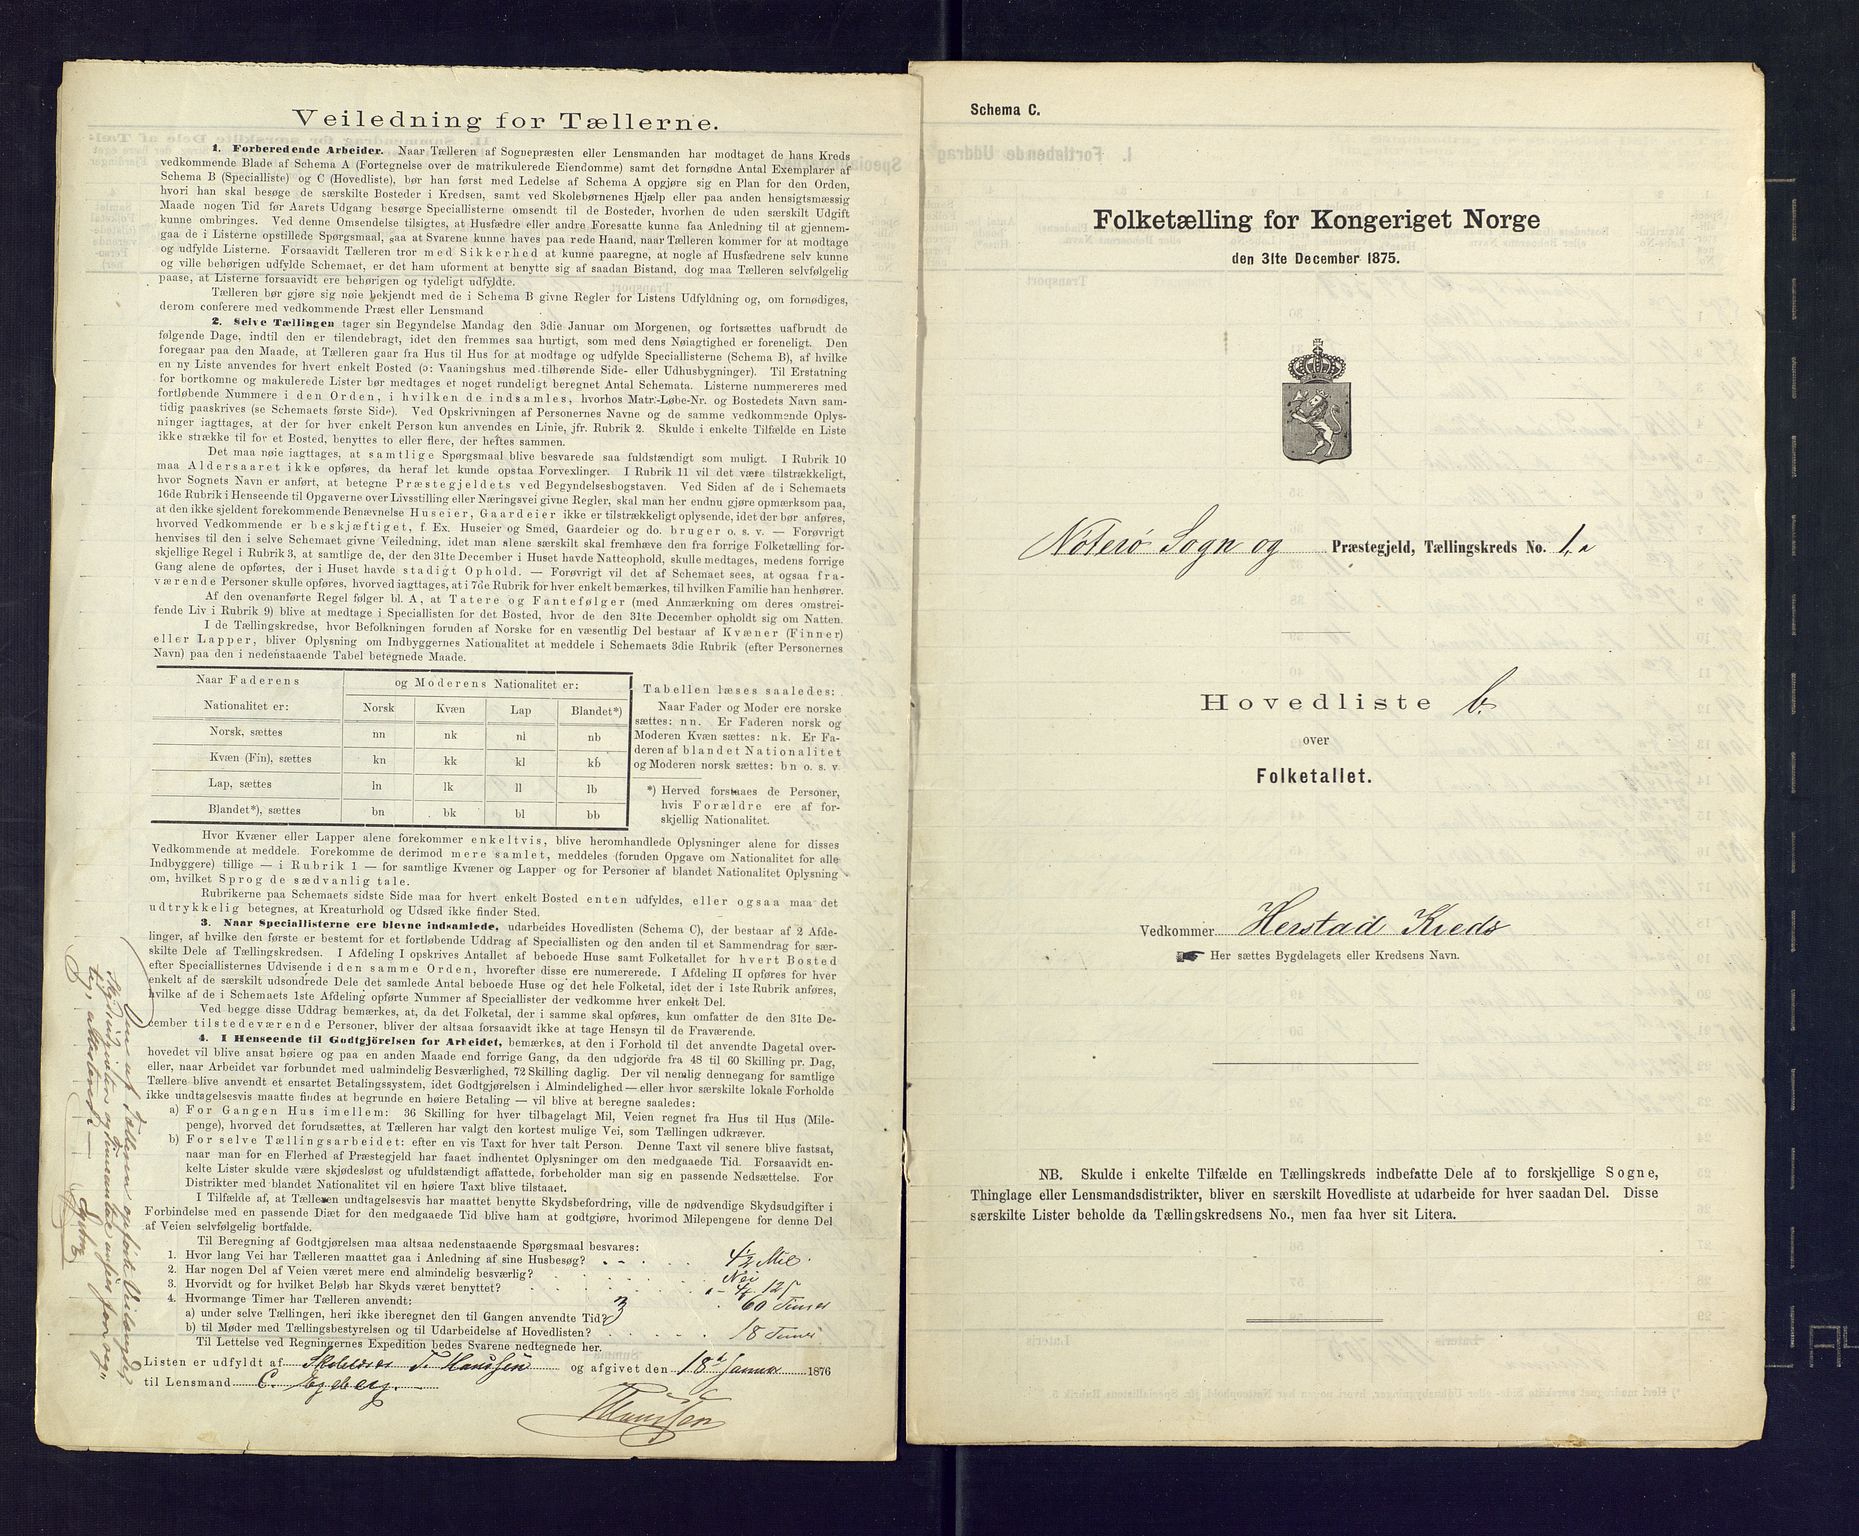 Veiledning for Tællerne.
1. Forberedende Arbeider. Naar Tælleren af Sognepræsten eller Lensmanden har modtaget de hans Kreds
vedkommende Blade af Schema A (Fortegnelse over de matrikulerede Eiendomme) samt det fornødne Antal Exemplarer af
Schema B (Specialliste) og C (Hovedliste), bør han først med Ledelse af Schema A opgjøre sig en Plan for den Orden,
hvori han skal besøge de særskilte Bosteder i Kredsen, samt ved Skolebørnenes Hjælp eller paa anden hensigtsmæssig
Maade nogen Tid før Aarets Udgang besørge Speciallisterne omsendt til de Bosteder, hvorhen de uden særskilt Udgift
kunne ombringes. Ved denne Omsendelse tilsigtes, at Husfædre eller andre Foresatte kunne faa Anledning til at gjennem-
gaa de i Listerne opstillede Spørgsmaal, saa at Svarene kunne haves paa rede Haand, naar Tælleren kommer for at modtage
og udfylde Listerne. Forsaavidt Tælleren tror med Sikkerhed at kunne paaregne, at nogle af Husfædrene selv kunne
og ville behørigen udfylde Schemaet, er det ham uforment at benytte sig af saadan Bistand, dog maa Tælleren selvfølgelig
paase, at Listerne forsaavidt ere behørigen og tydeligt udfyldte.
Tælleren bør gjøre sig nøie bekjendt med de i Schema B givne Regler for Listens Udfyldning og, om fornødiges,
derom conferere med vedkommende Præst eller Lensmand
2. Selve Tællingen tager sin Begyndelse Mandag den 3die Januar om Morgenen, og fortsættes uafbrudt de
følgende Dage, indtil den er tilendebragt, idet den fremmes saa hurtigt, som med dens Nøiagtighed er foreneligt. Den
foregaar paa den Maade, at Tælleren gaar fra Hus til Hus for at modtage og udfylde Speciallisterne (Schema B), af hvilke
en ny Liste anvendes for hvert enkelt Bosted (ɔ: Vaaningshus med tilhørende Side- eller Udhusbygninger). Til Erstatning
for bortkomne og makulerede Lister bør medtages et noget rundeligt beregnet Antal Schemata. Listerne nummereres med
fortløbende Nummere i den Orden, i hvilken de indsamles, hvorhos Matr.-Løbe-Nr. og Bostedets Navn sam-
tidig paaskrives (se Schemaets første Side). Ved Opskrivningen af Personernes Navne og de samme vedkommende Oplys-
ninger iagttages, at der for hver enkelt Person kun anvendes en Linie, jfr. Rubrik 2. Skulde i enkelte Tilfælde en Liste
ikke strække til for et Bosted, benyttes to eller flere, der heftes sammen.
Det maa nøie iagttages, at samtlige Spørgsmaal blive besvarede saa fuldstændigt som muligt. I Rubrik 10
maa Aldersaaret ikke opføres, da heraf let kunde opstaa Forvexlinger. I Rubrik 11 vil det være tilstrækkeligt,
hvor Sognets Navn er anført, at betegne Præstegjeldets ved Begyndelsesbogstaven. Ved Siden af de i Schemaets
16de Rubrik i Henseende til Opgaverne over Livsstilling eller Næringsvei givne Regler, skal man her endnu gjøre opmærksom paa,
at den ikke sjeldent forekommende Benævnelse Huseier, Gaardeier ikke er tilstrækkeligt oplysende, idet der bør anføres,
hvorved Vedkommende er beskjæftiget, f. Ex. Huseier og Smed, Gaardeier og do. bruger o. s. v. — Forøvrigt
henvises til den i selve Schemaet givne Veiledning, idet man alene særskilt skal fremhæve den fra forrige Folketælling for-
skjellige Regel i Rubrik 3, at samtlige de, der den 31te December i Huset havde Natteophold, skulle medtages, medens forrige
Gang alene de opførtes, der i Huset havde stadigt Ophold. — Forøvrigt vil det af Schemaet sees, at ogsaa fra-
værende Personer skulle opføres, hvorved iagttages, at i 7de Rubrik for hver enkelt bemerkes, til hvilken Familie han henhører.
Af den ovenanførte Regel følger bl. A, at Tatere og Fantefølger (med Anmærkning om deres omstrei-
fende Liv i Rubrik 9) blive at medtage i Speciallisten for det Bosted, hvor de den 31te December opholdt sig om Natten.
I de Tællingskredse, hvor Befolkningen foruden af Norske for en væsentlig Del bestaar af Kvæner (Finner)
eller Lapper, bliver Oplysning om Indbyggernes Nationalitet at meddele i Schemaets 3die Rubrik (efter Personernes
Navn) paa den i nedenstaaende Tabel betegnede Maade.
Naar Faderens og Moderens Nationalitet er:
Nationalitet er: Norsk Kvæn Lap Blandet*)
Norsk, sættes nn nk nl nb
Kvæn (Fin), sættes kn kk kl kb
Lap, sættes ln lk ll lb
Blandet*), sættes bn bk bl bb
Tabellen læses saaledes:
Naar Fader og Moder ere norske
sættes: nn. Er Faderen norsk og
Moderen Kvæn sættes: nk. Er Fa-
deren af blandet Nationalitet
og Moderen norsk sættes: bn o. s. v.
*) Herved forstaaes de Personer,
hvis Forældre ere af for-
skjellig Nationalitet.
Hvor Kvæner eller Lapper alene forekommer enkeltvis, blive heromhandlede Oplysninger alene for disses
Vedkommende at meddele. Forekomme de derimod mere samlet, meddeles (foruden Opgave om Nationalitet for alle
Indbyggere) tillige — i Rubrik 1 — for samtlige Kvæner og Lapper og for Personer af blandet Nationalitet Oplysning
om, hvilket Sprog de sædvanlig tale.
Rubrikerne paa Schemaets sidste Side maa for hvert enkelt Bosted enten udfyldes, eller ogsaa maa det
udtrykkelig betegnes, at Kreaturhold og Udsæd ikke finder Sted.
3. Naar Speciallisterne ere blevne indsamlede, udarbeides Hovedlisten (Schema C), der bestaar af 2 Afde-
linger, af hvilke den første er bestemt for et fortløbende Uddrag af Speciallisten og den anden til et Sammendrag for sær-
skilte Dele af Tællingskredsen. I Afdeling I opskrives Antallet af beboede Huse samt Folketallet for hvert Bosted
efter Speciallisternes Udvisende i den samme Orden, hvorefter disse ere numererede. I Afdeling II opføres for hver
enkelt af de særskilt udsondrede Dele det samlede Antal beboede Huse og det hele Folketal, idet der i 1ste Rubrik anføres,
hvilke af de i Schemaets 1ste Afdeling opførte Nummer af Speciallister der vedkomme hver enkelt Del.
Ved begge disse Uddrag bemerkes, at, da det Folketal, der i samme skal opføres, kun omfatter de den 31te De-
cember tilstedeværende Personer, bliver der altsaa forsaavidt ikke at tage Hensyn til de Fraværende.
4. I Henseende til Godtgjörelsen for Arbeidet, bemerkes, at den i Forhold til det anvendte Dagetal over-
hovedet vil blive ansat høiere og paa en anden Maade end forrige Gang, da den udgjorde fra 48 til 60 Skilling pr. Dag,
eller, naar Arbeidet var forbundet med ualmindelig Besværlighed, 72 Skilling daglig. Der vil nemlig dennegang for samtlige
Tællere blive anvendt et ensartet Betalingssystem, idet Godtgjörelsen i Almindelighed — eller hvor særskilte lokale Forholde
ikke undtagelsesvis maatte findes at begrunde en høiere Betaling — vil blive at beregne saaledes:
a) For Gangen Hus imellem: 36 Skilling for hver tilbagelagt Mil, Veien regnet fra Hus til Hus (Mile-
penge), hvorved det forudsættes, at Tælleren har valgt den kortest mulige Vei, som Tællingen udkræver.
b) For selve Tællingsarbeidet: efter en vis Taxt for hver talt Person. Denne Taxt vil senere blive fastsat,
naar man for en Flerhed af Præstegjeld har faaet indhentet Oplysninger om den medgaaede Tid. Forsaavidt en-
kelte Lister skulde være skjødesløst og ufuldstændigt affattede, forbeholder man sig en passende Nedsættelse. For
Distrikter med blandet Nationalitet vil en høiere Taxt blive tilstaaet.
I Tilfælde af, at Tælleren undtagelsesvis har maattet benytte Skydsbefordring, ville de nødvendige Skydsudgifter i
Forbindelse med en passende Diæt for den medgaaede Tid blive ham at godtgjøre, hvorimod Milepengene for denne Del
af Veien selvfølgelig bortfalde.
Til Beregning af Godtgjörelsen maa altsaa nedenstaaende Spørgsmaal besvares:
1. Hvor lang Vei har Tælleren maattet gaa i Anledning af sine Husbesøg? 4½ Mil.
2. Har nogen Del af Veien været mere end almindelig besværlig? Nei
3. Hvorvidt og for hvilket Beløb har Skyds været benyttet?
4. Hvormange Timer har Tælleren anvendt:
a) under selve Tællingen, heri ikke iberegnet den til Gangen anvendte Tid? 60 Timer
b) til Møder med Tællingsbestyrelsen og til Udarbeidelse af Hovedlisten? 18 Timer
Til Lettelse ved Regningernes Expedition bedes Svarene nedtegnede her.
Listen er udfyldt af T. Hanssen og afgivet den 18d Januar 1876
til Lensmand C. Egeberg.
THanssen
Schema C.
Folketælling for Kongeriget Norge
den 31te December 1875.
Noterø Sogn og Præstegjeld, Tællingskreds No. 1, a
Hovedliste b.
over
Folketallet.
Vedkommer Herstad Kreds
Her sættes Bygdelagets eller Kredsens Navn.
NB. Skulde i enkelte Tilfælde en Tællingskreds indbefatte Dele af to forskjellige Sogne,
Thinglage eller Lensmandsdistrikter, bliver en særskilt Hovedliste at udarbeide for hver saadan Del. Disse
særskilte Lister beholde da Tællingskredsens No., men faa hver sit Litera.